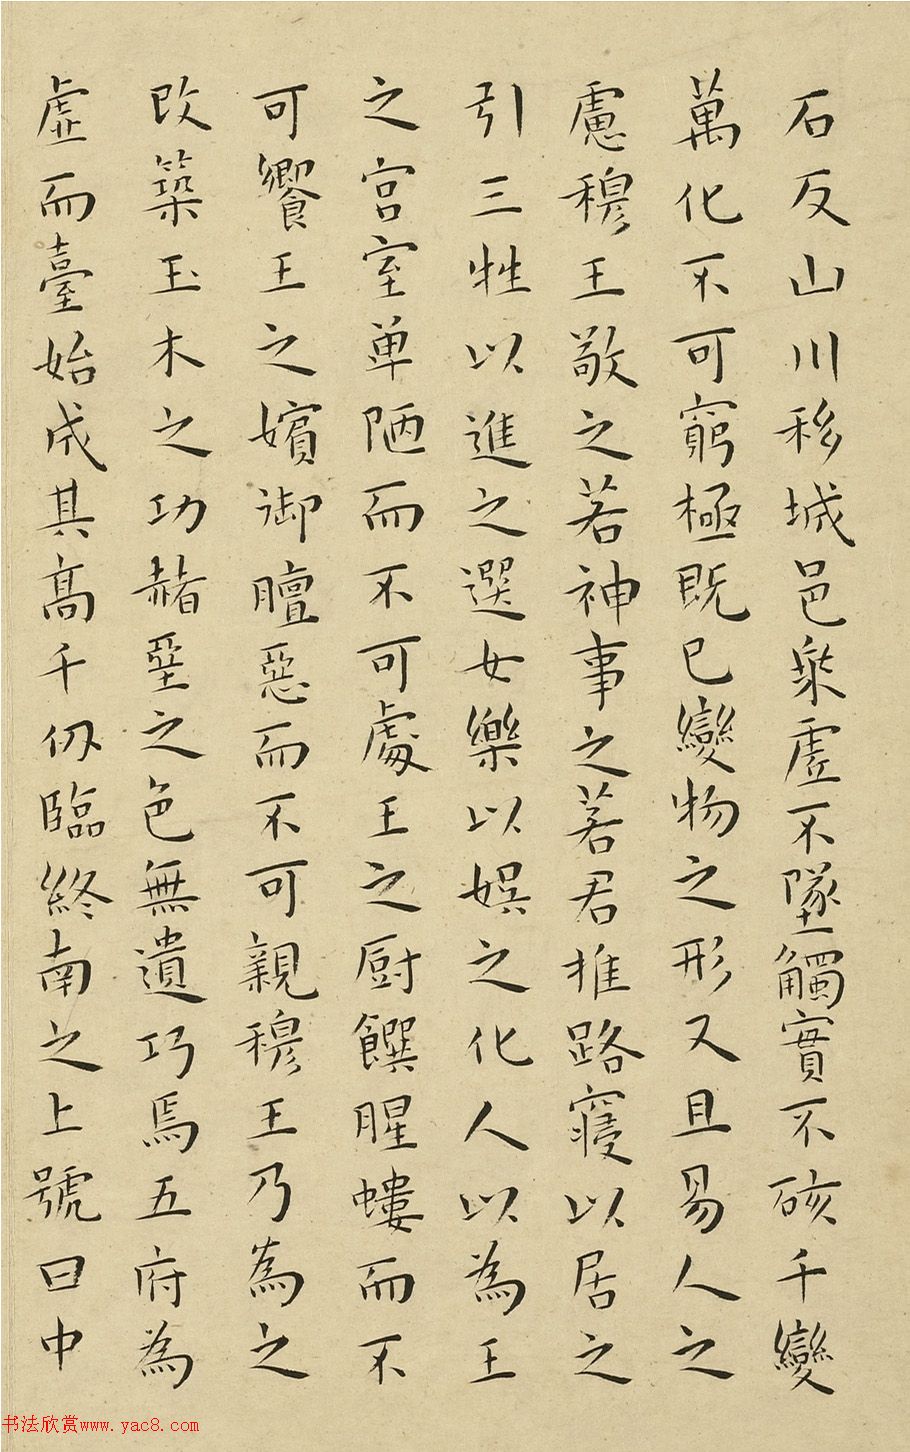 石反山川移城邑椉虚不墜觸實不硋千變
萬化不可窮極既已變物之形又且易人之
慮穆王敬之若神事之若君推路寢以居之
引三牲以進之選女樂以娯之化人以為王
之宫室卑陋而不可處王之厨饌腥螻而不
可饗王之嬪御膻惡而不可親穆王乃為之
改築玉木之功赭堊之色無遺巧焉五府為
虚而臺始成其髙千仭臨終南之上號曰中
书法欣赏www.yac8.com